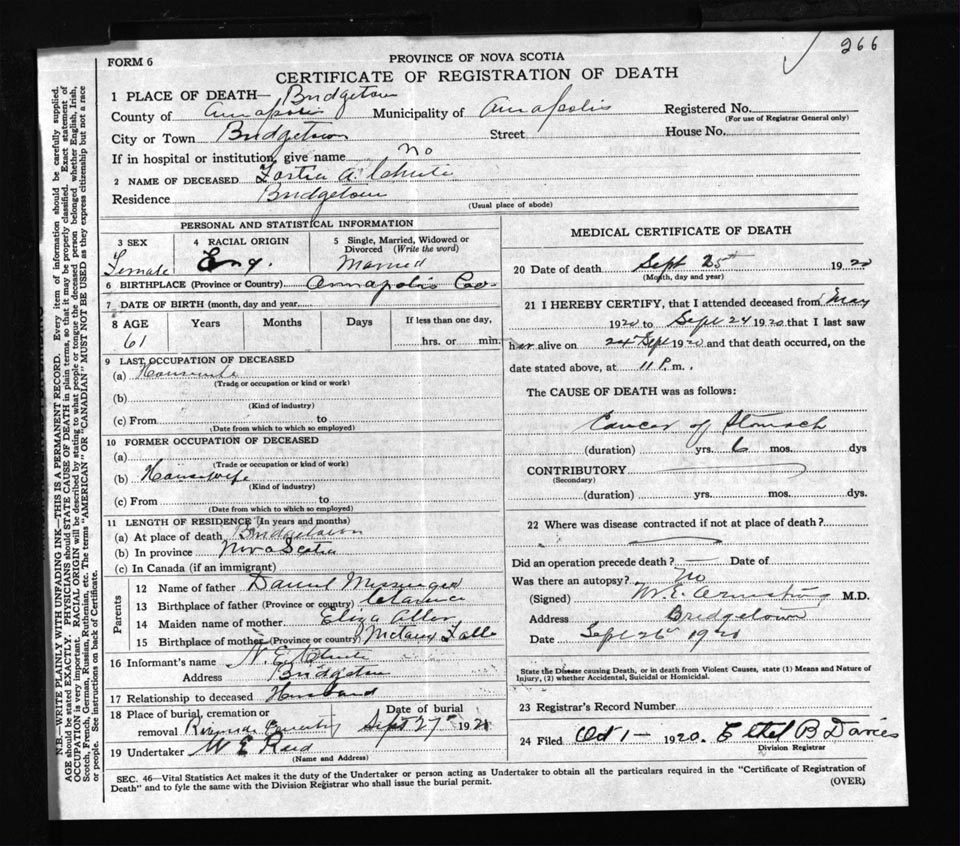 266
FORM 6
PROVINCE OF NOVA SCOTIA
CERTIFICATE OF REGISTRATION OF DEATH
1 PLACE OF DEATH— Bridgetown
County of Annapolis Municipality of Annapolis Registered No.
(For use of Registrar General only)
City or Town Bridgetown Street House No.
If in hospital or institution, give name No
2 NAME OF DECEASED A. Chute
Residence Bridgetown
(Usual place of abode)
PERSONAL AND STATISTICAL INFORMATION
3 SEX 4 RACIAL ORIGIN 5 Single, Married, Widowed or Divorced (Write the word)
Female Eng. Married
6 BIRTHPLACE (Province or Country) Annapolis Co.
7 DATE OF BIRTH (month, day and year)
8 AGE Years Months Days If less than one day,
61 hrs. or min.
9 LAST OCCUPATION OF DECEASED
(a) Housewife
(Trade or occupation or kind or work)
(b)
(Kind of industry)
(c) From to
(Date from which to which so employed)
10 FORMER OCCUPATION OF DECEASED
(a)
(Trade or occupation or kind of work)
(b) Housewife
(Kind of industry)
(c) From to
(Date from which to which so employed)
11 LENGTH OF RESIDENCE (In years and months)
(a) At place of death Bridgetown
(b) In province Nova Scotia
(c) In Canada (if an immigrant)
Parents
12 Name of father Daniel Messenger
13 Birthplace of father (Province or country) Clarence
14 Maiden name of mother Eliza Allen
15 Birthplace of mother (Province or country) Falls
16 Informant's name N. E. Chute
Address Bridgetown
17 Relationship to deceased Husband
18 Place of burial, cremation or removal Riverside Cemetery Date of burial Sept 27th 192
19 Undertaker W E Reed
(Name and Address)
MEDICAL CERTIFICATE OF DEATH
20 Date of death Sept 25th 1920
(Month, day and year)
21 I HEREBY CERTIFY, that I attended deceased from May
1920 to Sept 24 1920 that I last saw
her alive on 24th Sept 1920 and that death occurred, on the
date stated above, at 11 P. m.
The CAUSE OF DEATH was as follows:
Cancer of Stomach
(duration) yrs. 6 mos. dys
CONTRIBUTORY
(Secondary)
(duration) yrs. mos. dys.
22 Where was disease contracted if not at place of death?
Did an operation precede death? Date of
Was there an autopsy? No
(Signed) M.E. Armstrong M.D.
Address Bridgetown
Date Sept 26 1920
State the Disease causing Death, or in death from Violent Causes, state (1) Means and Nature of
Injury, (2) whether Accidental, Suicidal or Homicidal.
23 Registrar's Record Number
24 Filed Oct 1— 1920. Ethel B Davies
Division Registrar
SEC. 46—Vital Statistics Act makes it the duty of the Undertaker or person acting as Undertaker to obtain all the particulars required in the "Certificate of Registration of
Death" and to fyle the same with the Division Registrar who shall issue the burial permit. (OVER)
N.B.—WRITE PLAINLY WITH UNFADING INK—THIS IS A PERMANENT RECORD. Every item of information should be carefully supplied.
AGE should be stated EXACTLY. PHYSICIANS should STATE CAUSE OF DEATH in plain terms, so that it may be properly classified. Exact statement of
OCCUPATION is very important. RACIAL ORIGIN will be described by stating to what people or tongue the deceased person belonged, whether English, Irish,
Scotch, French, German, Russian, Ruthenian, etc. The terms "AMERICAN" OR "CANADIAN" MUST NOT BE USED as they express citizenship but not a race
or people. See instructions on back of Certificate.